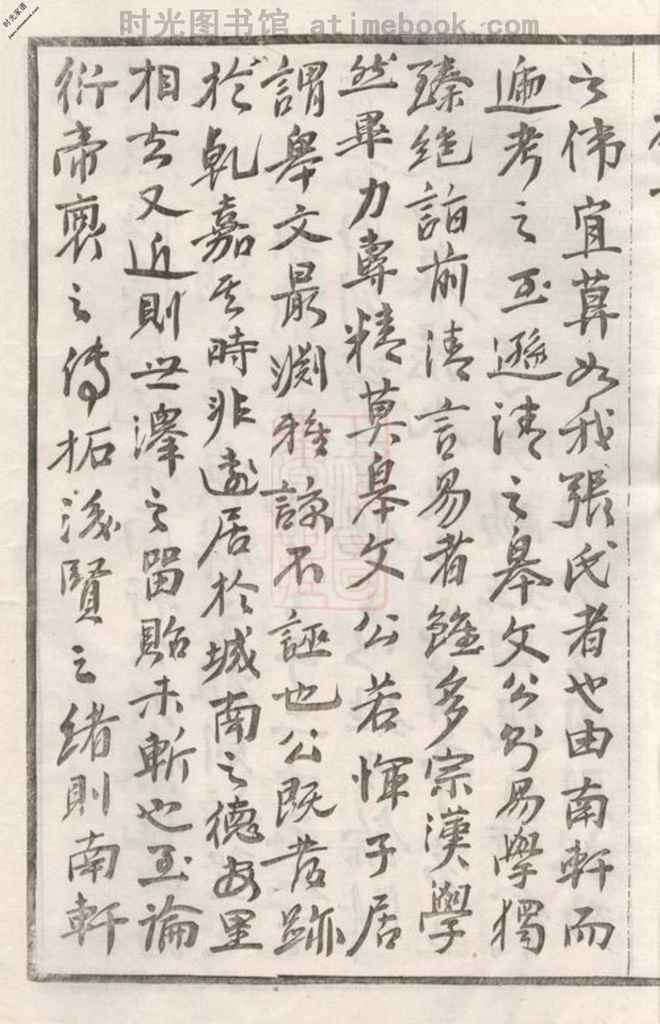 时光图书馆 www.atimebook.com
时光家谱
之偉宜莫如我張氏者也由南軒而
遞考之至遜清之皋文公則易學獨
臻絕詣前清言易者雖多宗漢學
然畢力專精莫皋文公若惲子居
謂皋文最淵雅諒不誣也公既發跡
於乾嘉其時非遠居於城南之德安里
相去又近則世澤之留貽未斬也至論
衍帝裏之傳拓後賢之緒則南軒